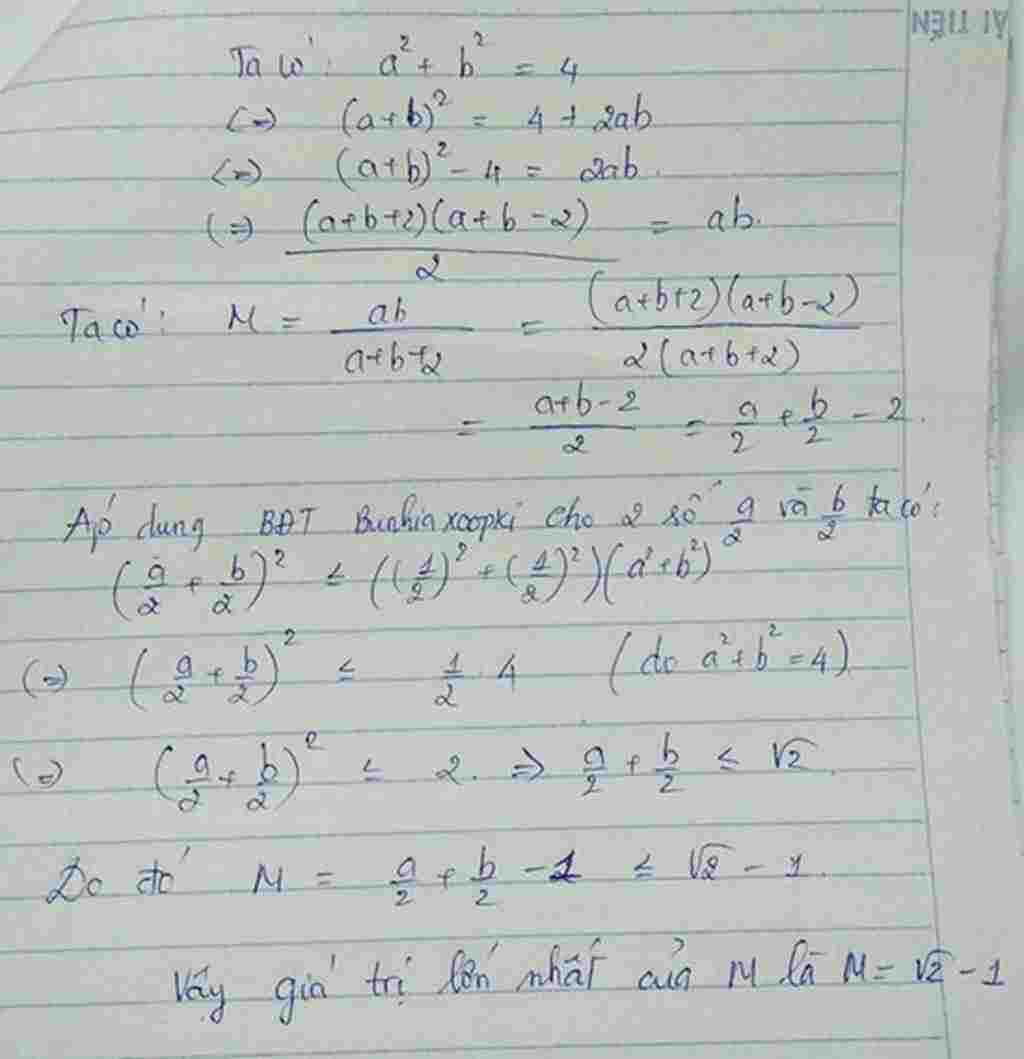 ẢI TIẾN
Ta có: a² + b² = 4
(=) (a+b)² = 4 + 2ab
(=) (a+b)² - 4 = 2ab.
(=) (a+b+2)(a+b-2)/2 = ab.
Ta có: M = ab/(a+b+2) = (a+b+2)(a+b-2)/2(a+b+2)
= (a+b-2)/2 = a/2 + b/2 - 2.
Áp dung BĐT Bunhia xoopki cho 2 số a/2 và b/2 ta có:
(a/2 + b/2)² ≤ ((1/2)² + (1/2)²)(a²+b²)
(=) (a/2 + b/2)² ≤ 1/2 . 4 (do a²+b²=4)
(=) (a/2 + b/2)² ≤ 2. => a/2 + b/2 ≤ √2.
Do đó M = a/2 + b/2 - 1 ≤ √2 - 1.
Vậy giá trị lớn nhất của M là M = √2 - 1